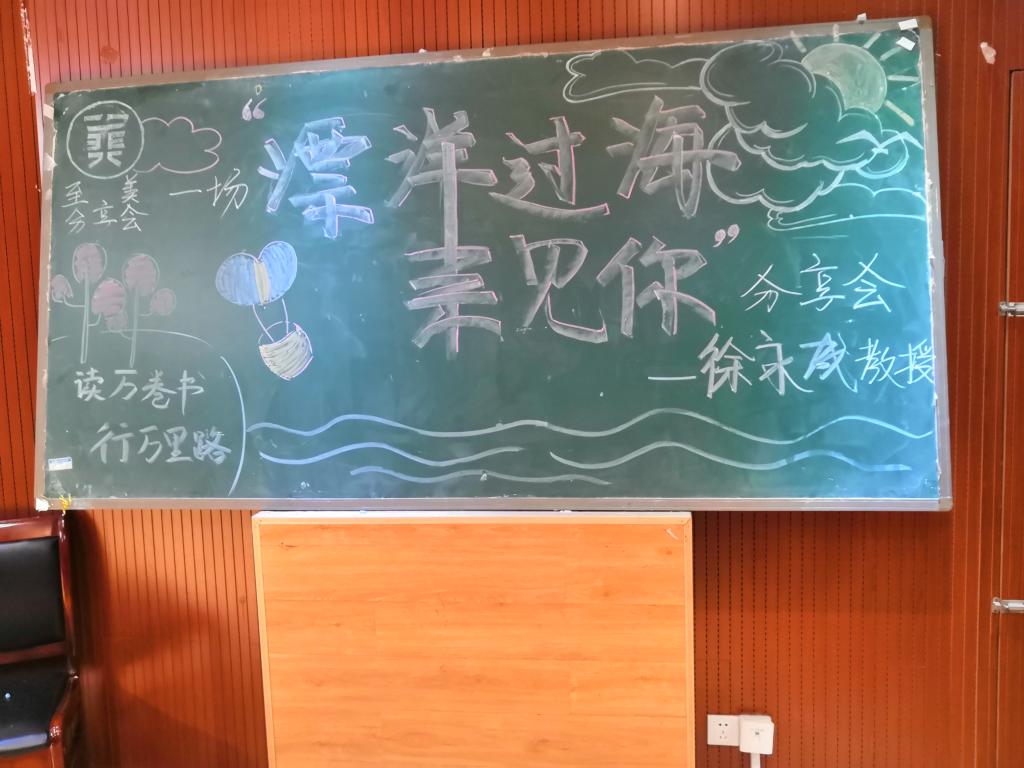 至美
分享会
一场
“漂洋过海
来见你”
分享会
—徐永成教授
读万卷书
行万里路